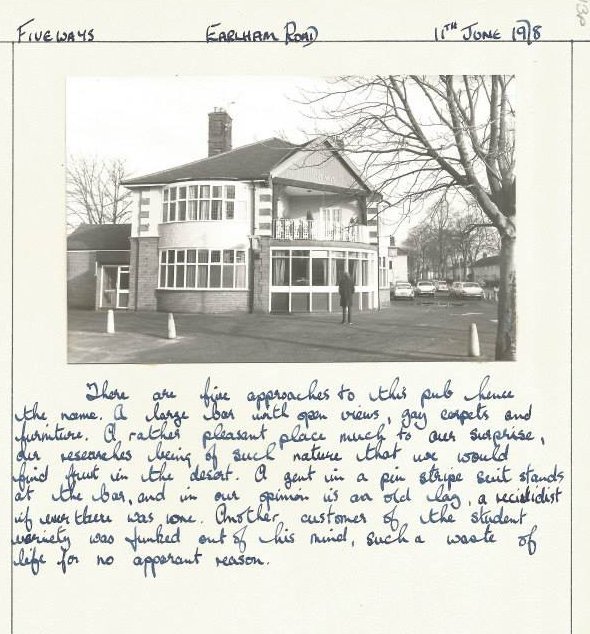 FIVEWAYS EARLHAM ROAD 11TH JUNE 1978
There are five approaches to this pub hence
the name. A large bar with open views, gay carpets and
furniture. A rather pleasant place much to our surprise,
our researches being of such nature that we would
find fruit in the desert. A gent in a pin stripe suit stands
at the bar, and in our opinion is an old lag, a recididist
if ever there was one. Another customer of the student
variety was junked out of his mind, such a waste of
life for no apparant reason.